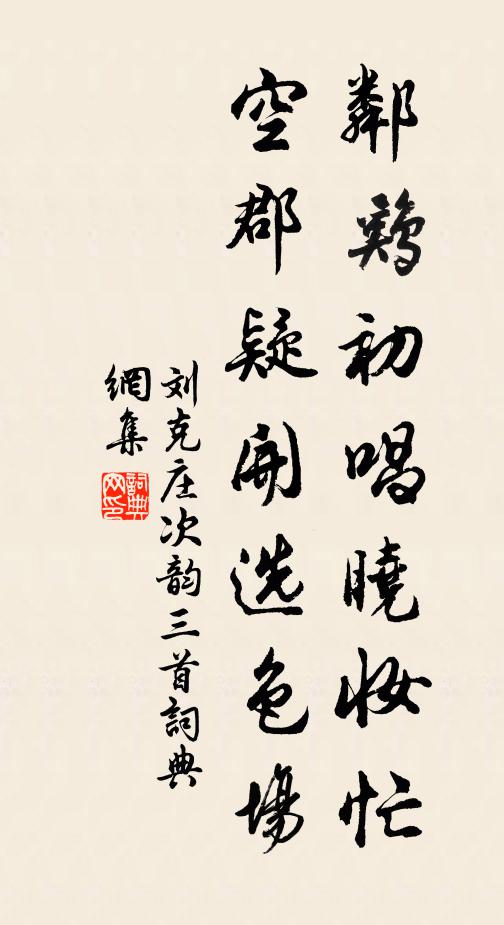 鄰鷄初唱曉妝忙
空郡疑開选色場
刘克庄次韵三首詞典
網集
詞典
网印